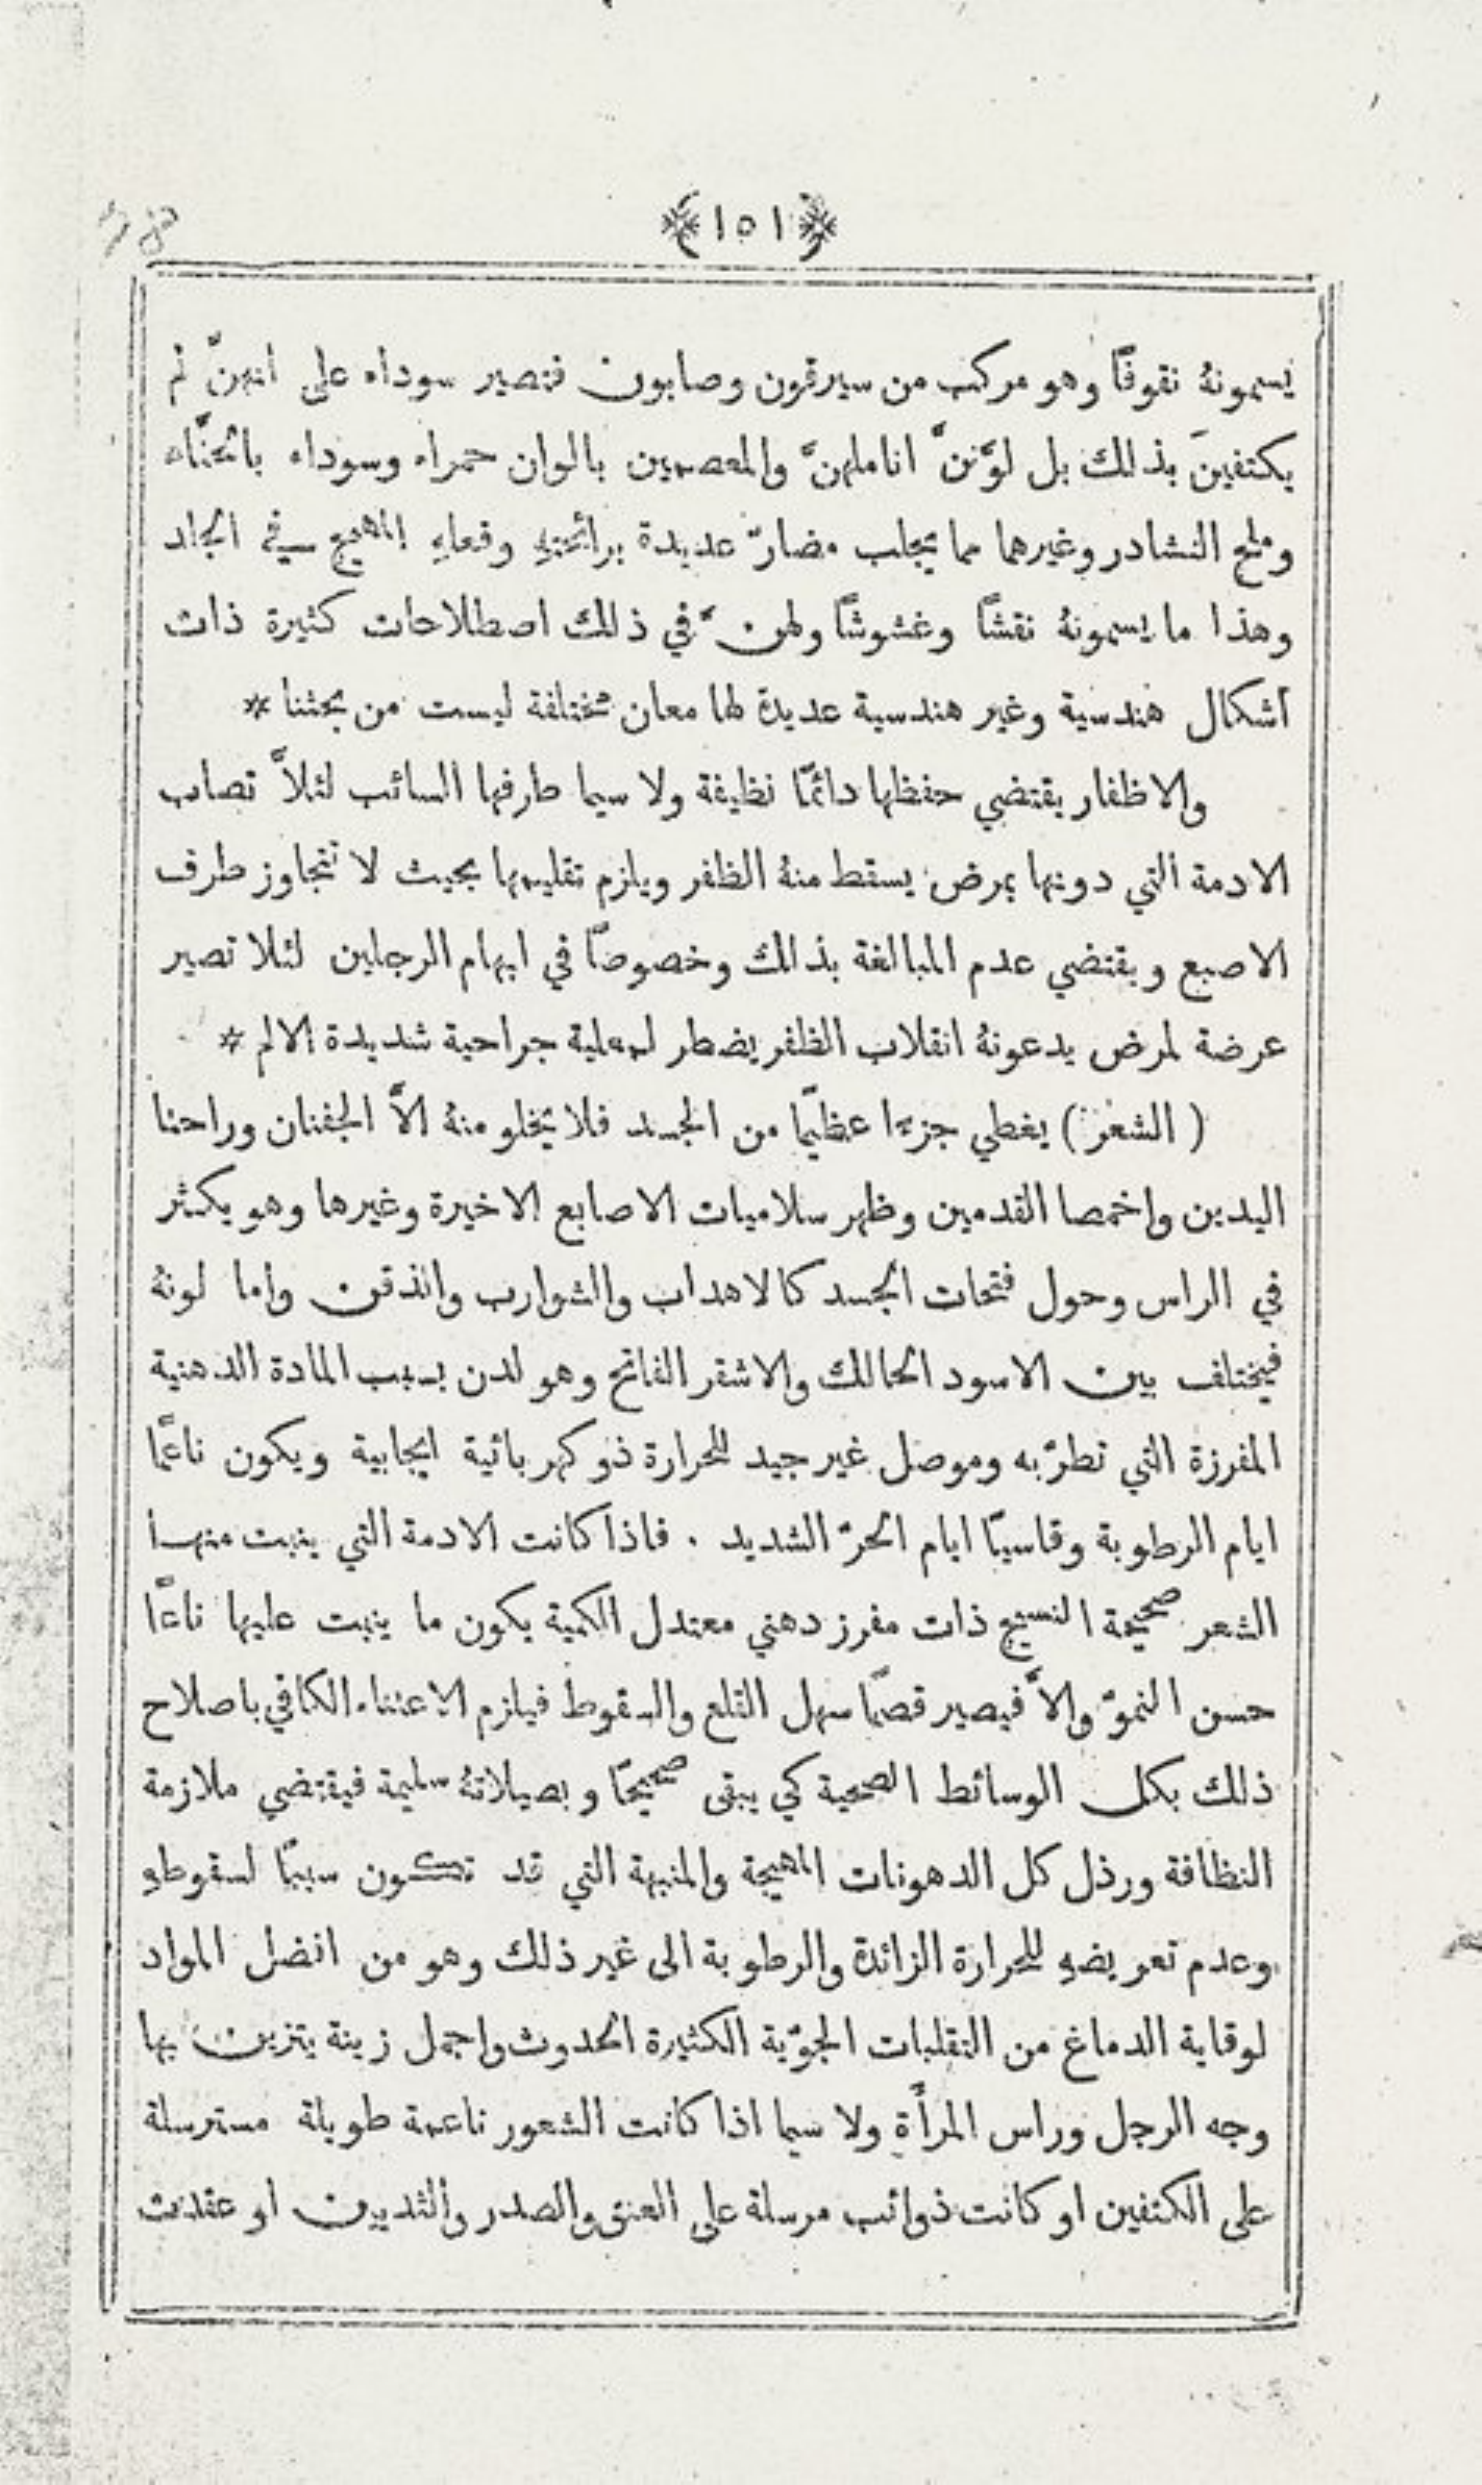 ﴿١٥١﴾
يسمونهُ نقوفًا وهو مركب من سيرقون وصابون فتصير سوداء على انهنَّ لم
يكتفينَ بذلك بل لوَّنَّ اناملهنَّ والمعصمين بالوان حمراء وسوداء بالحنَّاء
وملح النشادر وغيرهما مما يجلب مضارّ عديدة برائحتهِ وفعلهِ المهيج في الجلد
وهذا ما يسمونهُ نقشًا وغشوشًا ولهنَّ في ذلك اصطلاحات كثيرة ذات
اشكال هندسية وغير هندسية عديدة لها معان مختلفة ليست من بحثنا *
والاظفار يقتضي حفظها دائمًا نظيفة ولا سيما طرفها السائب لئلاَّ تصاب
الادمة التي دونها بمرض يسقط منهُ الظفر ويلزم تقليمها بحيث لا تتجاوز طرف
الاصبع ويقتضي عدم المبالغة بذلك وخصوصًا في ابهام الرجلين لئلا تصير
عرضة لمرض يدعونهُ انقلاب الظفر يضطر لعملية جراحية شديدة الالم *
( الشعر ) يغطي جزءا عظيمًا من الجسد فلا يخلو منهُ الاَّ الجفنان وراحتا
اليدين واخمصا القدمين وظهر سلاميات الاصابع الاخيرة وغيرها وهو يكثر
في الراس وحول فتحات الجسد كالاهداب والشوارب والذقن واما لونهُ
فيختلف بين الاسود الحالك والاشقر الفاتح وهو لدن بسبب المادة الدهنية
المفرزة التي تطرّبه وموصل غير جيد للحرارة ذو كهربائية ايجابية ويكون ناعمًا
ايام الرطوبة وقاسيًا ايام الحرّ الشديد . فاذا كانت الادمة التي ينبت منها
الشعر صحيحة النسيج ذات مفرز دهني معتدل الكمية يكون ما ينبت عليها ناعمًا
حسن النموّ والاَّ فيصير قصمًا سهل القلع والسقوط فيلزم الاعتناء الكافي باصلاح
ذلك بكل الوسائط الصحية كي يبقى صحيحًا وبصيلاتهُ سليمة فيقتضي ملازمة
النظافة ورذل كل الدهونات المهيجة والمنبهة التي قد تكون سببًا لسقوطهِ
وعدم تعريضهِ للحرارة الزائدة والرطوبة الى غير ذلك وهو من افضل المواد
لوقاية الدماغ من التقلبات الجوّية الكثيرة الحدوث واجمل زينة يتزين بها
وجه الرجل وراس المرأَة ولا سيما اذا كانت الشعور ناعمة طويلة مسترسلة
على الكتفين او كانت ذوائب مرسلة على العنق والصدر والثديين او عقدت